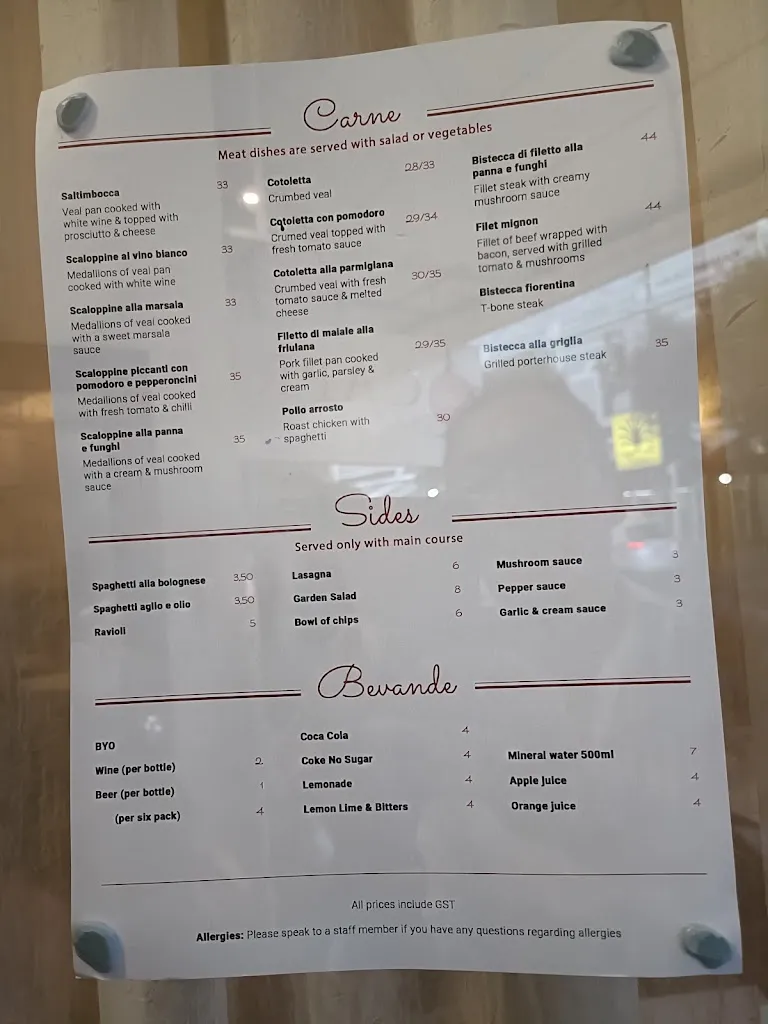 Carne
Meat dishes are served with salad or vegetables
Saltimbocca 33
Veal pan cooked with
white wine & topped with
prosciutto & cheese
Scaloppine al vino bianco 33
Medallions of veal pan
cooked with white wine
Scaloppine alla marsala 33
Medallions of veal cooked
with a sweet marsala
sauce
Scaloppine piccanti con
pomodoro e pepperoncini 35
Medallions of veal cooked
with fresh tomato & chilli
Scaloppine alla panna
e funghi 35
Medallions of veal cooked
with a cream & mushroom
sauce
Cotoletta 28/33
Crumbed veal
Cotoletta con pomodoro 29/34
Crumed veal topped with
fresh tomato sauce
Cotoletta alla parmigiana 30/35
Crumbed veal with fresh
tomato sauce & melted
cheese
Filetto di maiale alla
friulana 29/35
Pork fillet pan cooked
with garlic, parsley &
cream
Pollo arrosto 30
Roast chicken with
spaghetti
Bistecca di filetto alla 44
panna e funghi
Fillet steak with creamy
mushroom sauce
Filet mignon 44
Fillet of beef wrapped with
bacon, served with grilled
tomato & mushrooms
Bistecca fiorentina
T-bone steak
Bistecca alla griglia 35
Grilled porterhouse steak
Sides
Served only with main course
Spaghetti alla bolognese 3.50
Spaghetti aglio e olio 3.50
Ravioli 5
Lasagna 6
Garden Salad 8
Bowl of chips 6
Mushroom sauce 3
Pepper sauce 3
Garlic & cream sauce 3
Bevande
BYO
Wine (per bottle) 2
Beer (per bottle) 1
(per six pack) 4
Coca Cola 4
Coke No Sugar 4
Lemonade 4
Lemon Lime & Bitters 4
Mineral water 500ml 7
Apple juice 4
Orange juice 4
All prices include GST
Allergies: Please speak to a staff member if you have any questions regarding allergies